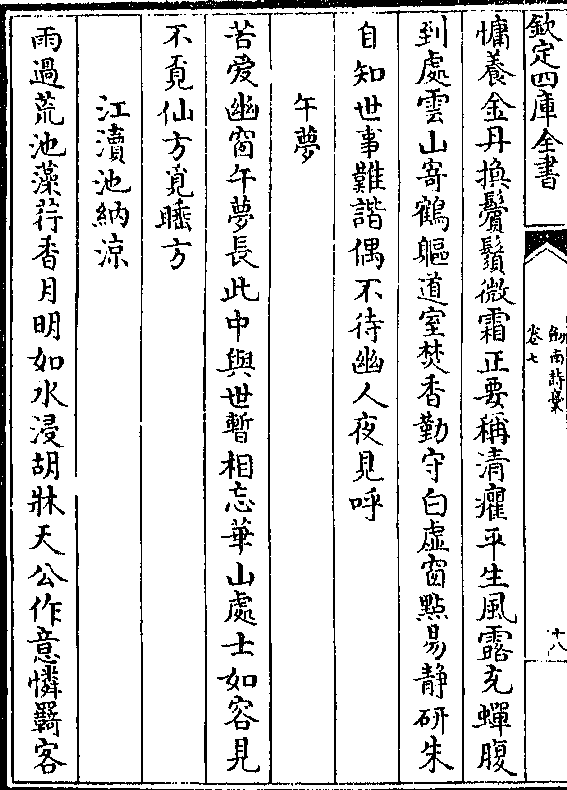 欽定四庫全書
劍南詩藁
卷七
十八
慵養金丹換鬢鬚微霜正要稱清癯平生風露充蟬腹
到處雲山寄鶴軀道室焚香勤守白虛窗點易靜研朱
自知世事難諧偶不待幽人夜見呼
午夢
苦愛幽窗午夢長此中與世暫相忘華山處士如容見
不覓仙方覓睡方
江瀆池納涼
雨過荒池藻荇香月明如水浸胡牀天公作意憐羇客